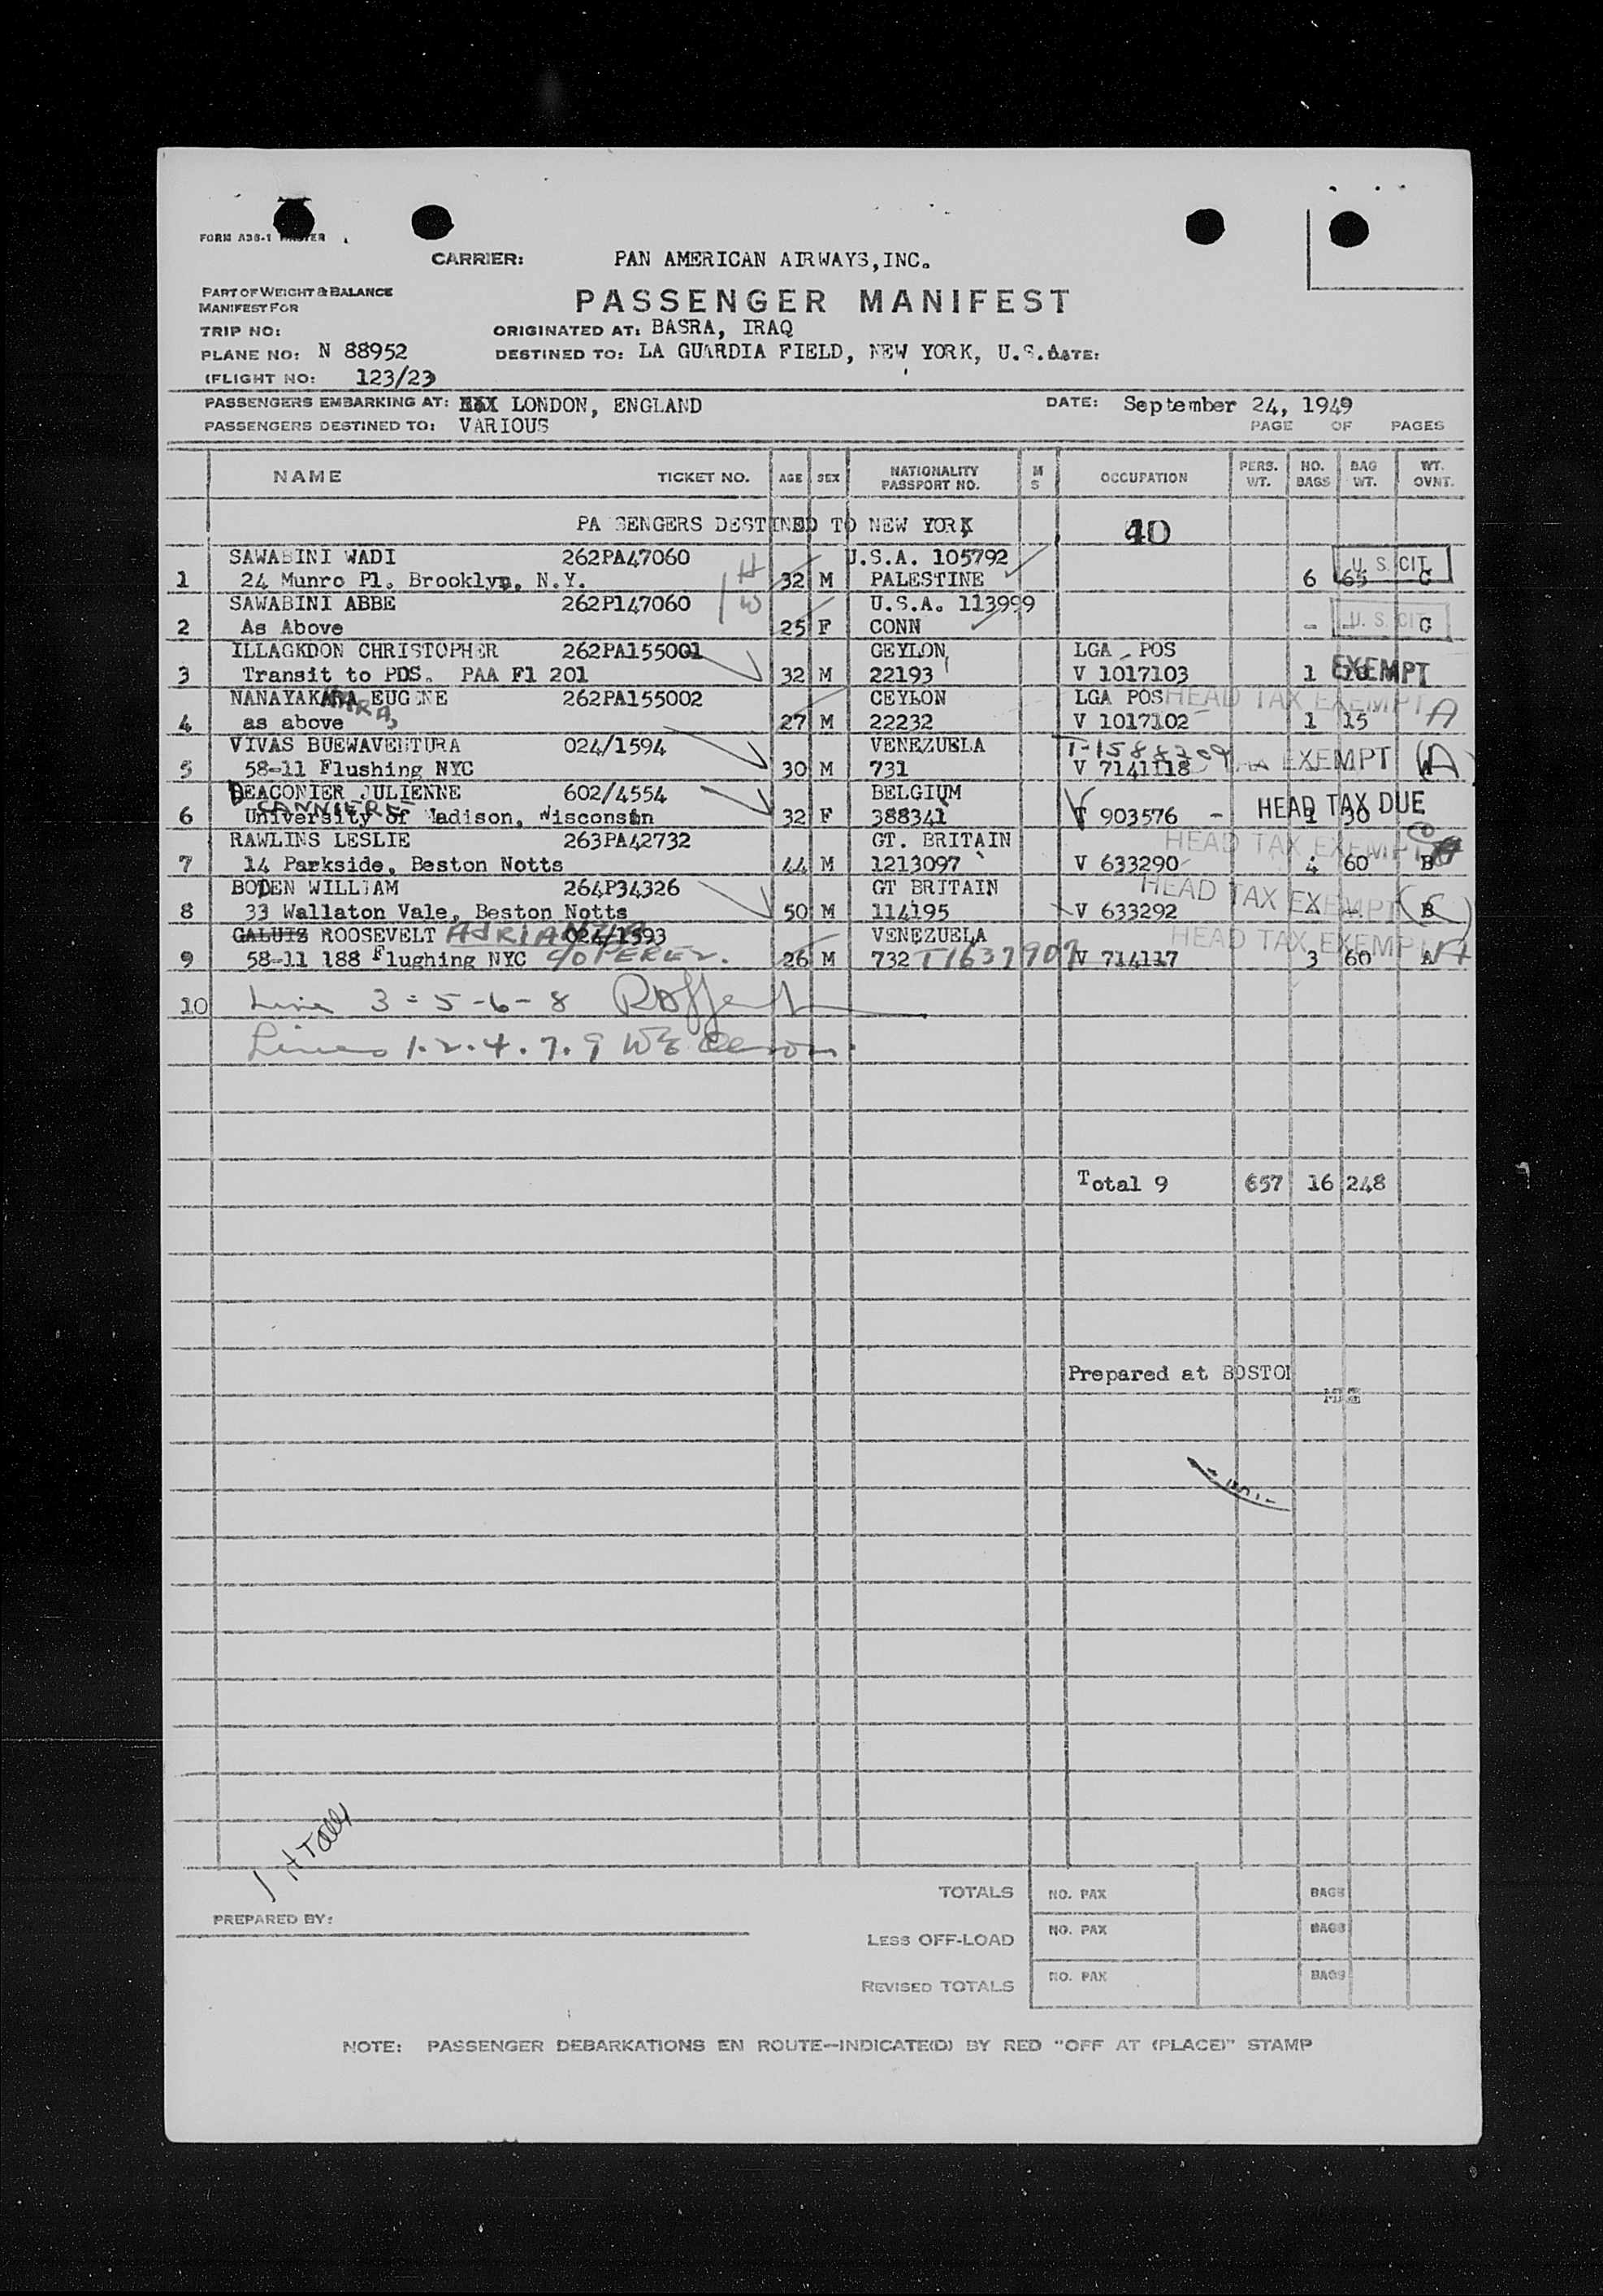 FORM A36-1 MASTER
CARRIER: PAN AMERICAN AIRWAYS,INC.
PART OF WEIGHT & BALANCE
MANIFEST FOR
PASSENGER MANIFEST
TRIP NO: ORIGINATED AT: BASRA, IRAQ
PLANE NO: N 88952 DESTINED TO: LA GUARDIA FIELD, NEW YORK, U.S. DATE:
(FLIGHT NO: 123/23
PASSENGERS EMBARKING AT: LONDON, ENGLAND DATE: September 24, 1949
PASSENGERS DESTINED TO: VARIOUS PAGE OF PAGES
NAME TICKET NO. AGE SEX NATIONALITY PASSPORT NO. M S OCCUPATION PERS. WT. NO. BAGS BAG WT. WT. OVNT.
PA SENGERS DESTINED TO NEW YORK 40
SAWABINI WADI 262PA47060 H U.S.A. 105792 U. S. CIT.
1 24 Munro Pl. Brooklyn, N.Y. 32 M PALESTINE 6 65 C
SAWABINI ABBE 262P147060 W U.S.A. 113999 U. S. CIT
2 As Above 25 F CONN - - C
ILLAGKDON CHRISTOPHER 262PA155001 CEYLON LGA - POS
3 Transit to PDS. PAA Fl 201 32 M 22193 V 1017103 1 EXEMPT
NANAYAKARA EUGENE 262PA155002 CEYLON LGA POS HEAD TAX EXEMPT
4 as above 27 M 22232 V 1017102 1 15 A
VIVAS BUEWAVENTURA 024/1594 VENEZUELA T-1588309
5 58-11 Flushing NYC 30 M 731 V 7141118 TAX EXEMPT (A)
DEACONIER JULIENNE 602/4554 BELGIUM
CANNIERE
6 University of Madison, Wisconsin 32 F 388341 V 903576 - HEAD TAX DUE 1 30
RAWLINS LESLIE 263PA42732 GT. BRITAIN HEAD TAX EXEMPT
7 14 Parkside, Beston Notts 44 M 1213097 V 633290 4 60 B
BODEN WILLIAM 264P34326 GT BRITAIN HEAD TAX EXEMPT
8 33 Wallaton Vale, Beston Notts 50 M 114195 V 633292 - - B
GALUIZ ROOSEVELT ADRIANZA 024/1593 VENEZUELA HEAD TAX EXEMPT
9 58-11 188 Flughing NYC C/O PEREZ. 26 M 732 T1637907 V 714117 3 60 A
10 Line 3-5-6-8
Lines 1.2.4.7.9
Total 9 657 16 248
Prepared at BOSTON
PREPARED BY:
TOTALS NO. PAX BAGS
LESS OFF-LOAD NO. PAX BAGS
REVISED TOTALS NO. PAX BAGS
NOTE: PASSENGER DEBARKATIONS EN ROUTE—INDICATE(D) BY RED "OFF AT (PLACE)" STAMP